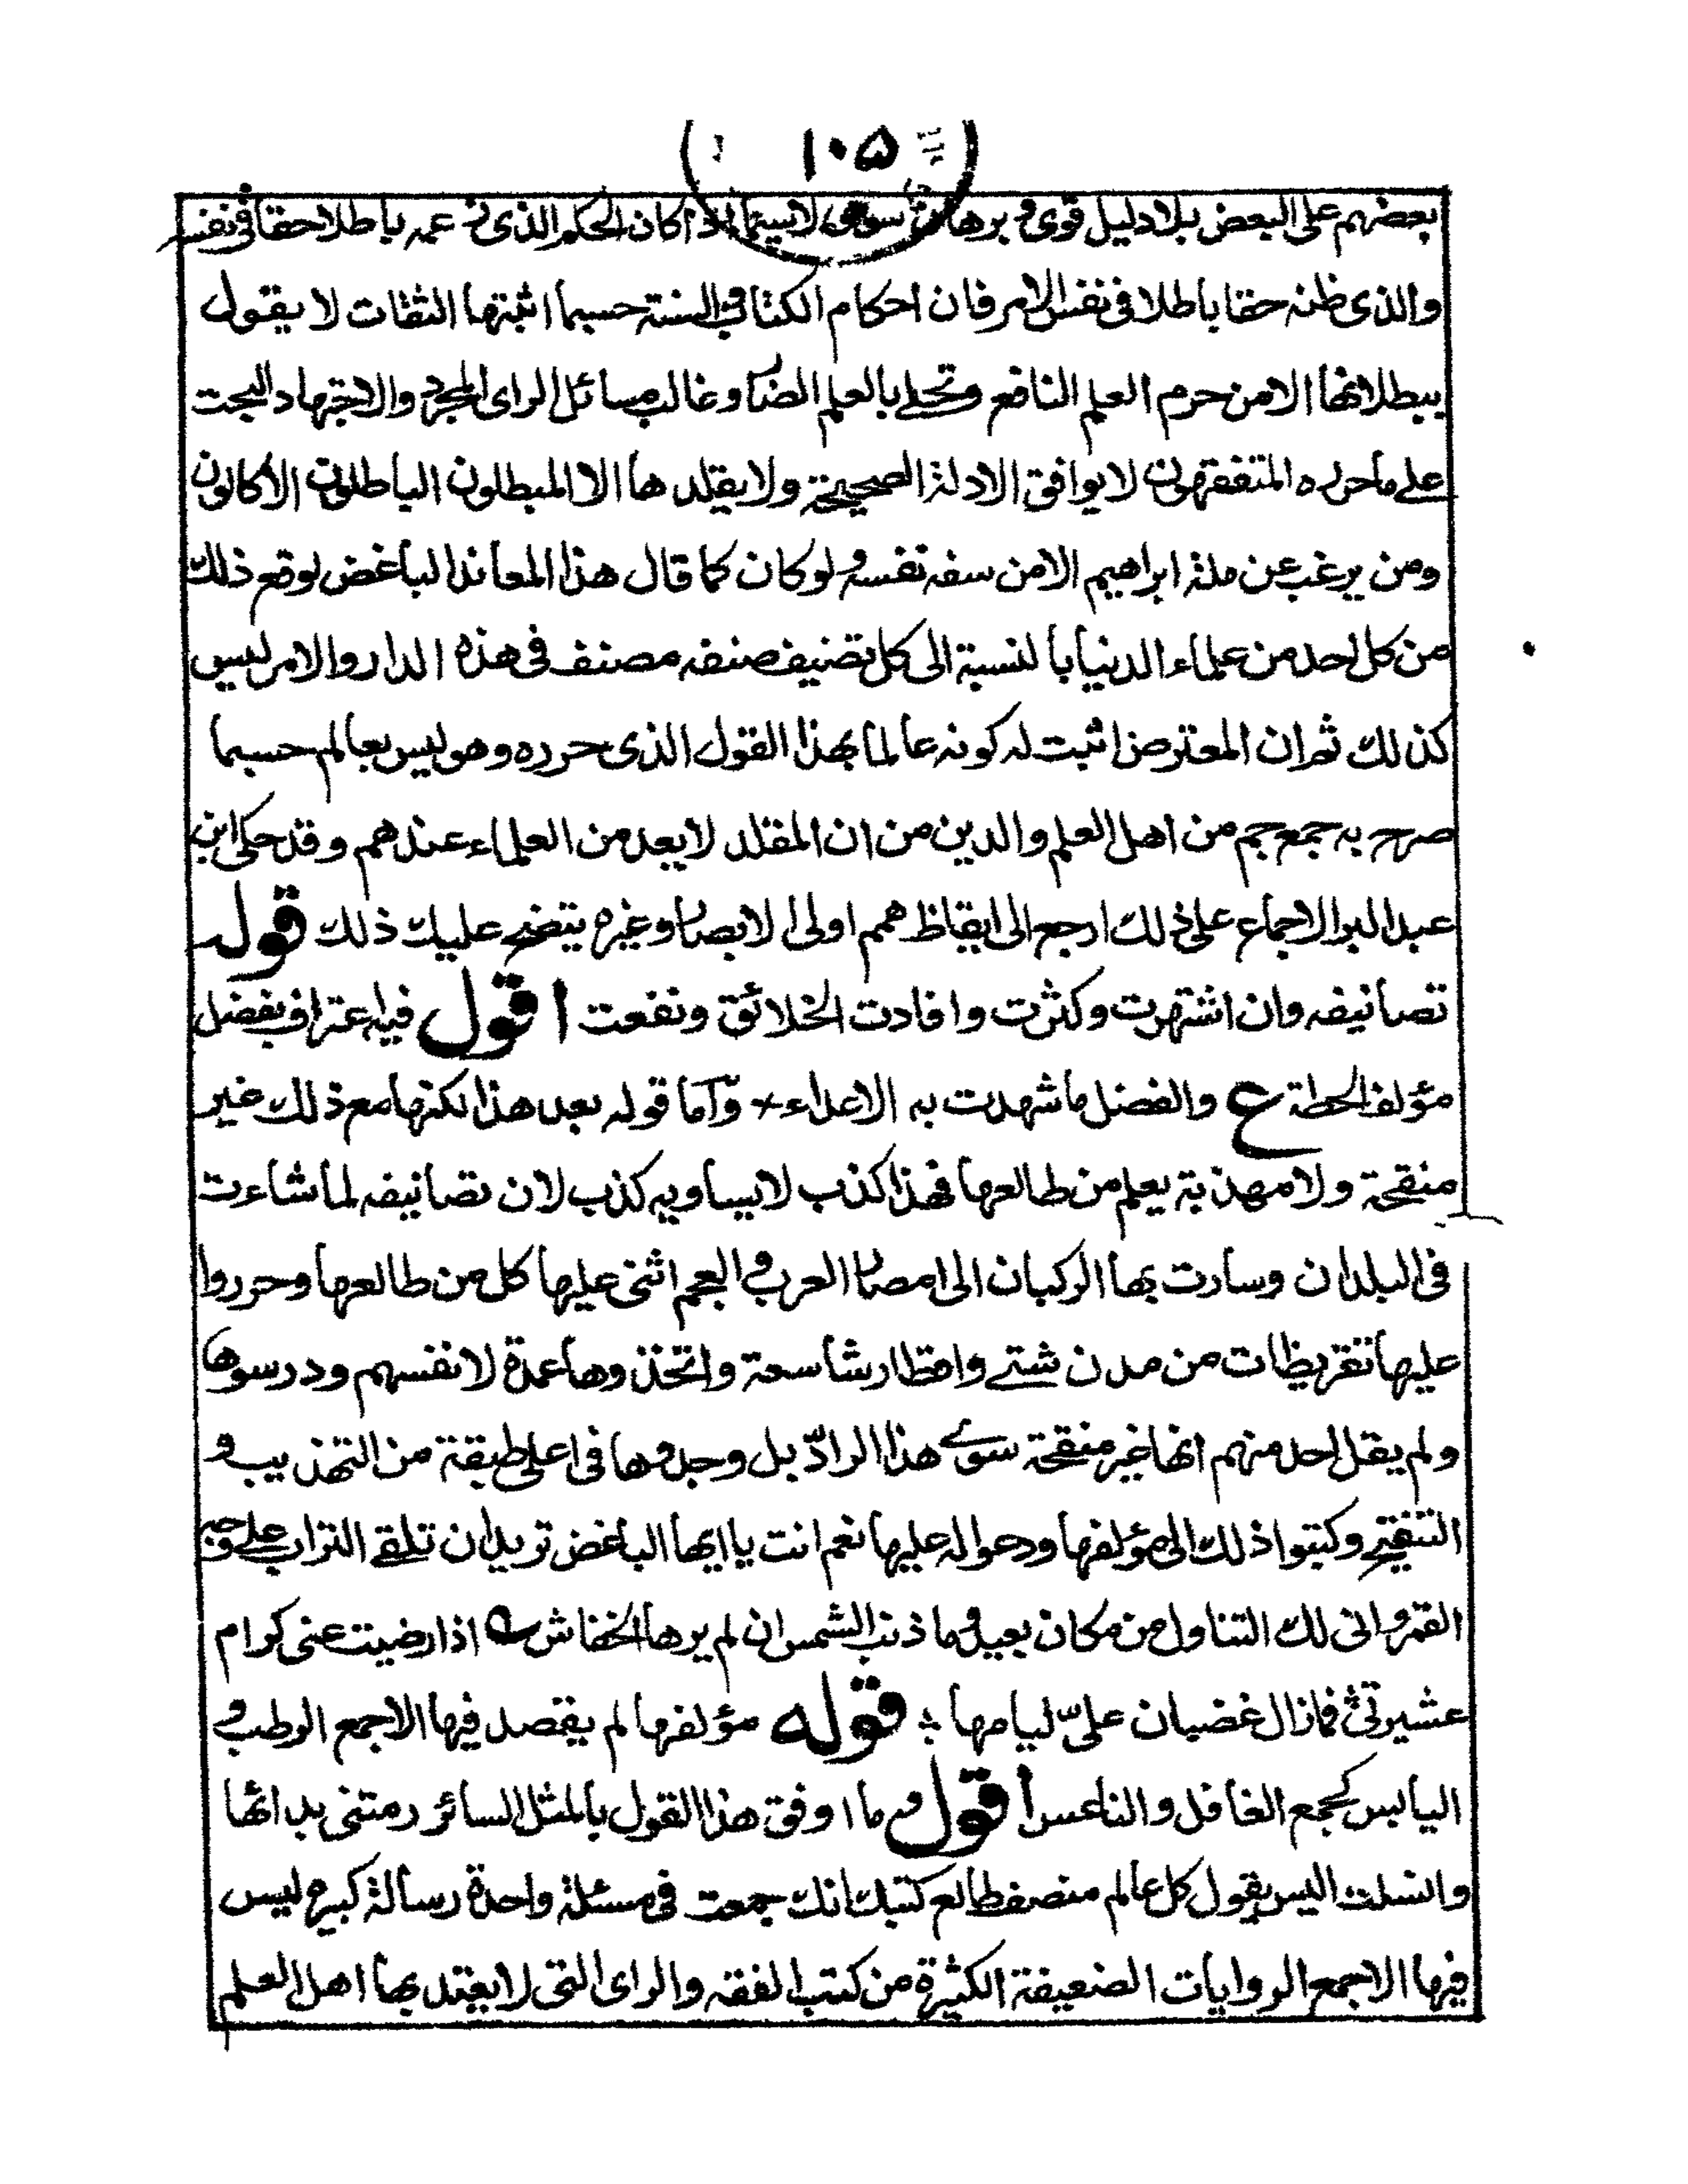 ١٠۵
بعضهم على البعض بلا دليل قوى و برهان سوى لاسيما اذا كان الحكم الذى زعمه باطلا حقا فى نفسه
والذى ظنه حقا باطلا فى نفس الامر فان احكام الكتاب والسنة حسبما اثبتها الثقات لا يقول
ببطلانها الا من حرم العلم النافع وتحلى بالعلم الضار وغالب مسائل الراى المجرد والاجتهاد البحت
على ما حرره المتفقهون لا يوافق الادلة الصحيحة ولا يقلدها الا المبطلون الباطلون الأكالون
ومن يرغب عن ملة ابراهيم الا من سفه نفسه ولو كان كما قال هذا المعاند الباغض لوقع ذلك
من كل احد من علماء الدنيا بالنسبة الى كل تصنيف صنفه مصنف فى هذه الدار والامر ليس
كذلك ثم ان المعترض اثبت له كونه عالما بهذا القول الذى حرره وهو ليس بعالم حسبما
صرح به جمع جم من اهل العلم والدين من ان المقلد لا يعد من العلماء عندهم وقد حكى ابن
عبد البر الاجماع على ذلك ارجع الى ايقاظ همم اولى الابصار وغيره يتضح عليك ذلك قوله
تصانيفه وان اشتهرت وكثرت وافادت الخلائق ونفعت اقول فيه اعتراف بفضل
مؤلف الحطة ع والفضل ما شهدت به الاعداء وأما قوله بعد هذا لكنها مع ذلك غير
منقحة ولا مهذبة يعلم من طالعها فهذا كذب لا يساويه كذب لان تصانيفه لما شاءت
فى البلدان وسارت بها الركبان الى امصار العرب و العجم اثنى عليها كل من طالعها وحرروا
عليها تقريظات من مدن شتى واقطار شاسعة واتخذوها عمدة لانفسهم ودرسوها
ولم يقل احد منهم انها غير منقحة سوى هذا الرادّ بل وجدوها فى اعلى طبقة من التهذيب و
التنقيح وكتبوا ذلك الى مؤلفها ودعوا له عليها نعم انت يا ايها الباغض تريد ان تلقى التراب على وجه
القمر وانى لك التناول من مكان بعيد وما ذنب الشمس ان لم يرها الخفاش اذا رضيت عنى كرام
عشيرتى فما زال غضبان علىّ ليامها قوله مؤلفها لم يقصد فيها الا جمع الرطب و
اليابس كجمع الغافل والناعس اقول ما اوفق هذا القول بالمثل السائر رمتنى بدائها
وانسلت اليس يقول كل عالم منصف طالع كتبك انك جمعت فى مسئلة واحدة رسالة كبيرة ليس
فيها الا جمع الروايات الضعيفة الكثيرة من كتب الفقه والراى التى لا يعتد بها اهل العلم